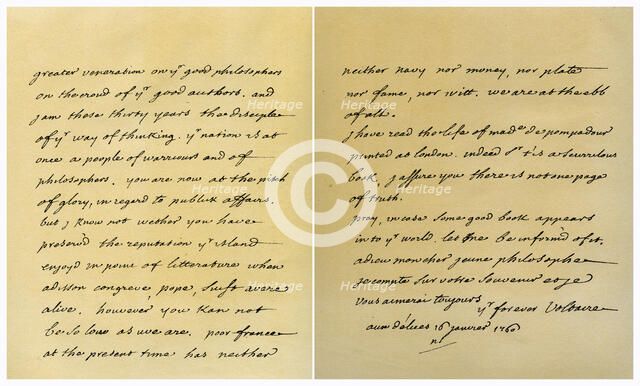 greater veneration on yr good philosophers
on the croud of yr good authors. and
j am those thirty years the disciple
of yr way of thinking. yr nation is at
once a people of warriours and off
philosophers. you are now at the pitch
of glory, in regard to publick affairs.
but j know not wether you have
preserv'd the reputation yr island
enjoy'd in point of litterature when
adisson, congreve, pope, swift, were
alive. however you kan not
be so low as we are. poor france
at the present time has neither
neither navy nor money, nor plate
nor fame, nor witt. we are at the ebb
of all.
j have read the life of made de pompadour
printed at london. indeed Sr t'is a scurrilous
book, j assure you there is not one page
of truth.
pray, in case some good book appears
in to yr world, let me be inform'd of it.
adieu mon cher jeune philosophe
je compte sur votre souvenir et je
vous aimerai toujours
yr forever Voltaire
aux délices 16 janvier 1760
Heritage
Heritage
Heritage
Heritage
Heritage
Heritage
Heritage
Heritage